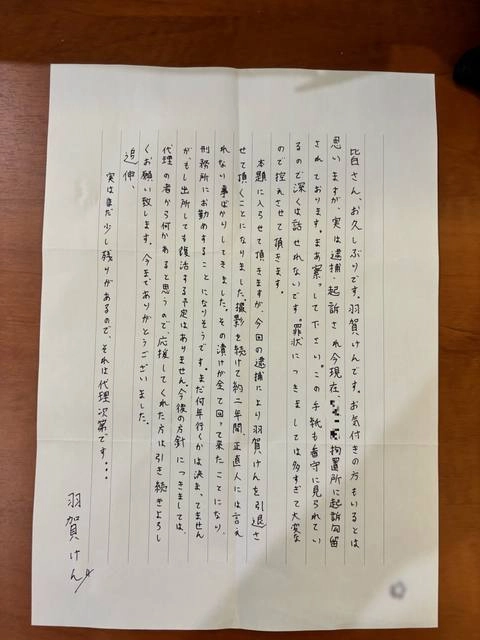 皆さん、お久しぶりです。羽賀けんです。お気付きの方もいるとは
思いますが、実は逮捕・起訴され今現在、拘置所に起訴勾留
されております。まあ察して下さい。この手紙も看守に見られてい
るので深くは話せれないです。罪状につきましては多すぎて大変な
ので控えさせて頂きます。
本題に入らせて頂きますが、今回の逮捕により羽賀けんを引退さ
せて頂くことになりました。撮影を続けて約二年間、正直人には言え
れない事ばかりしてきました。その漬けが全て回って来たことになり、
刑務所にお勤めすることになりそうです。まだ何年行くかは決まってません
が、もし出所しても復活する予定はありません。今後の方針につきましては、
代理の者から何かあると思うので、応援してくれた方は引き続きよろし
くお願い致します。今までありがとうございました。
追伸、
実はまだ少し残りがあるので、それは代理次第です・・・
羽賀けん